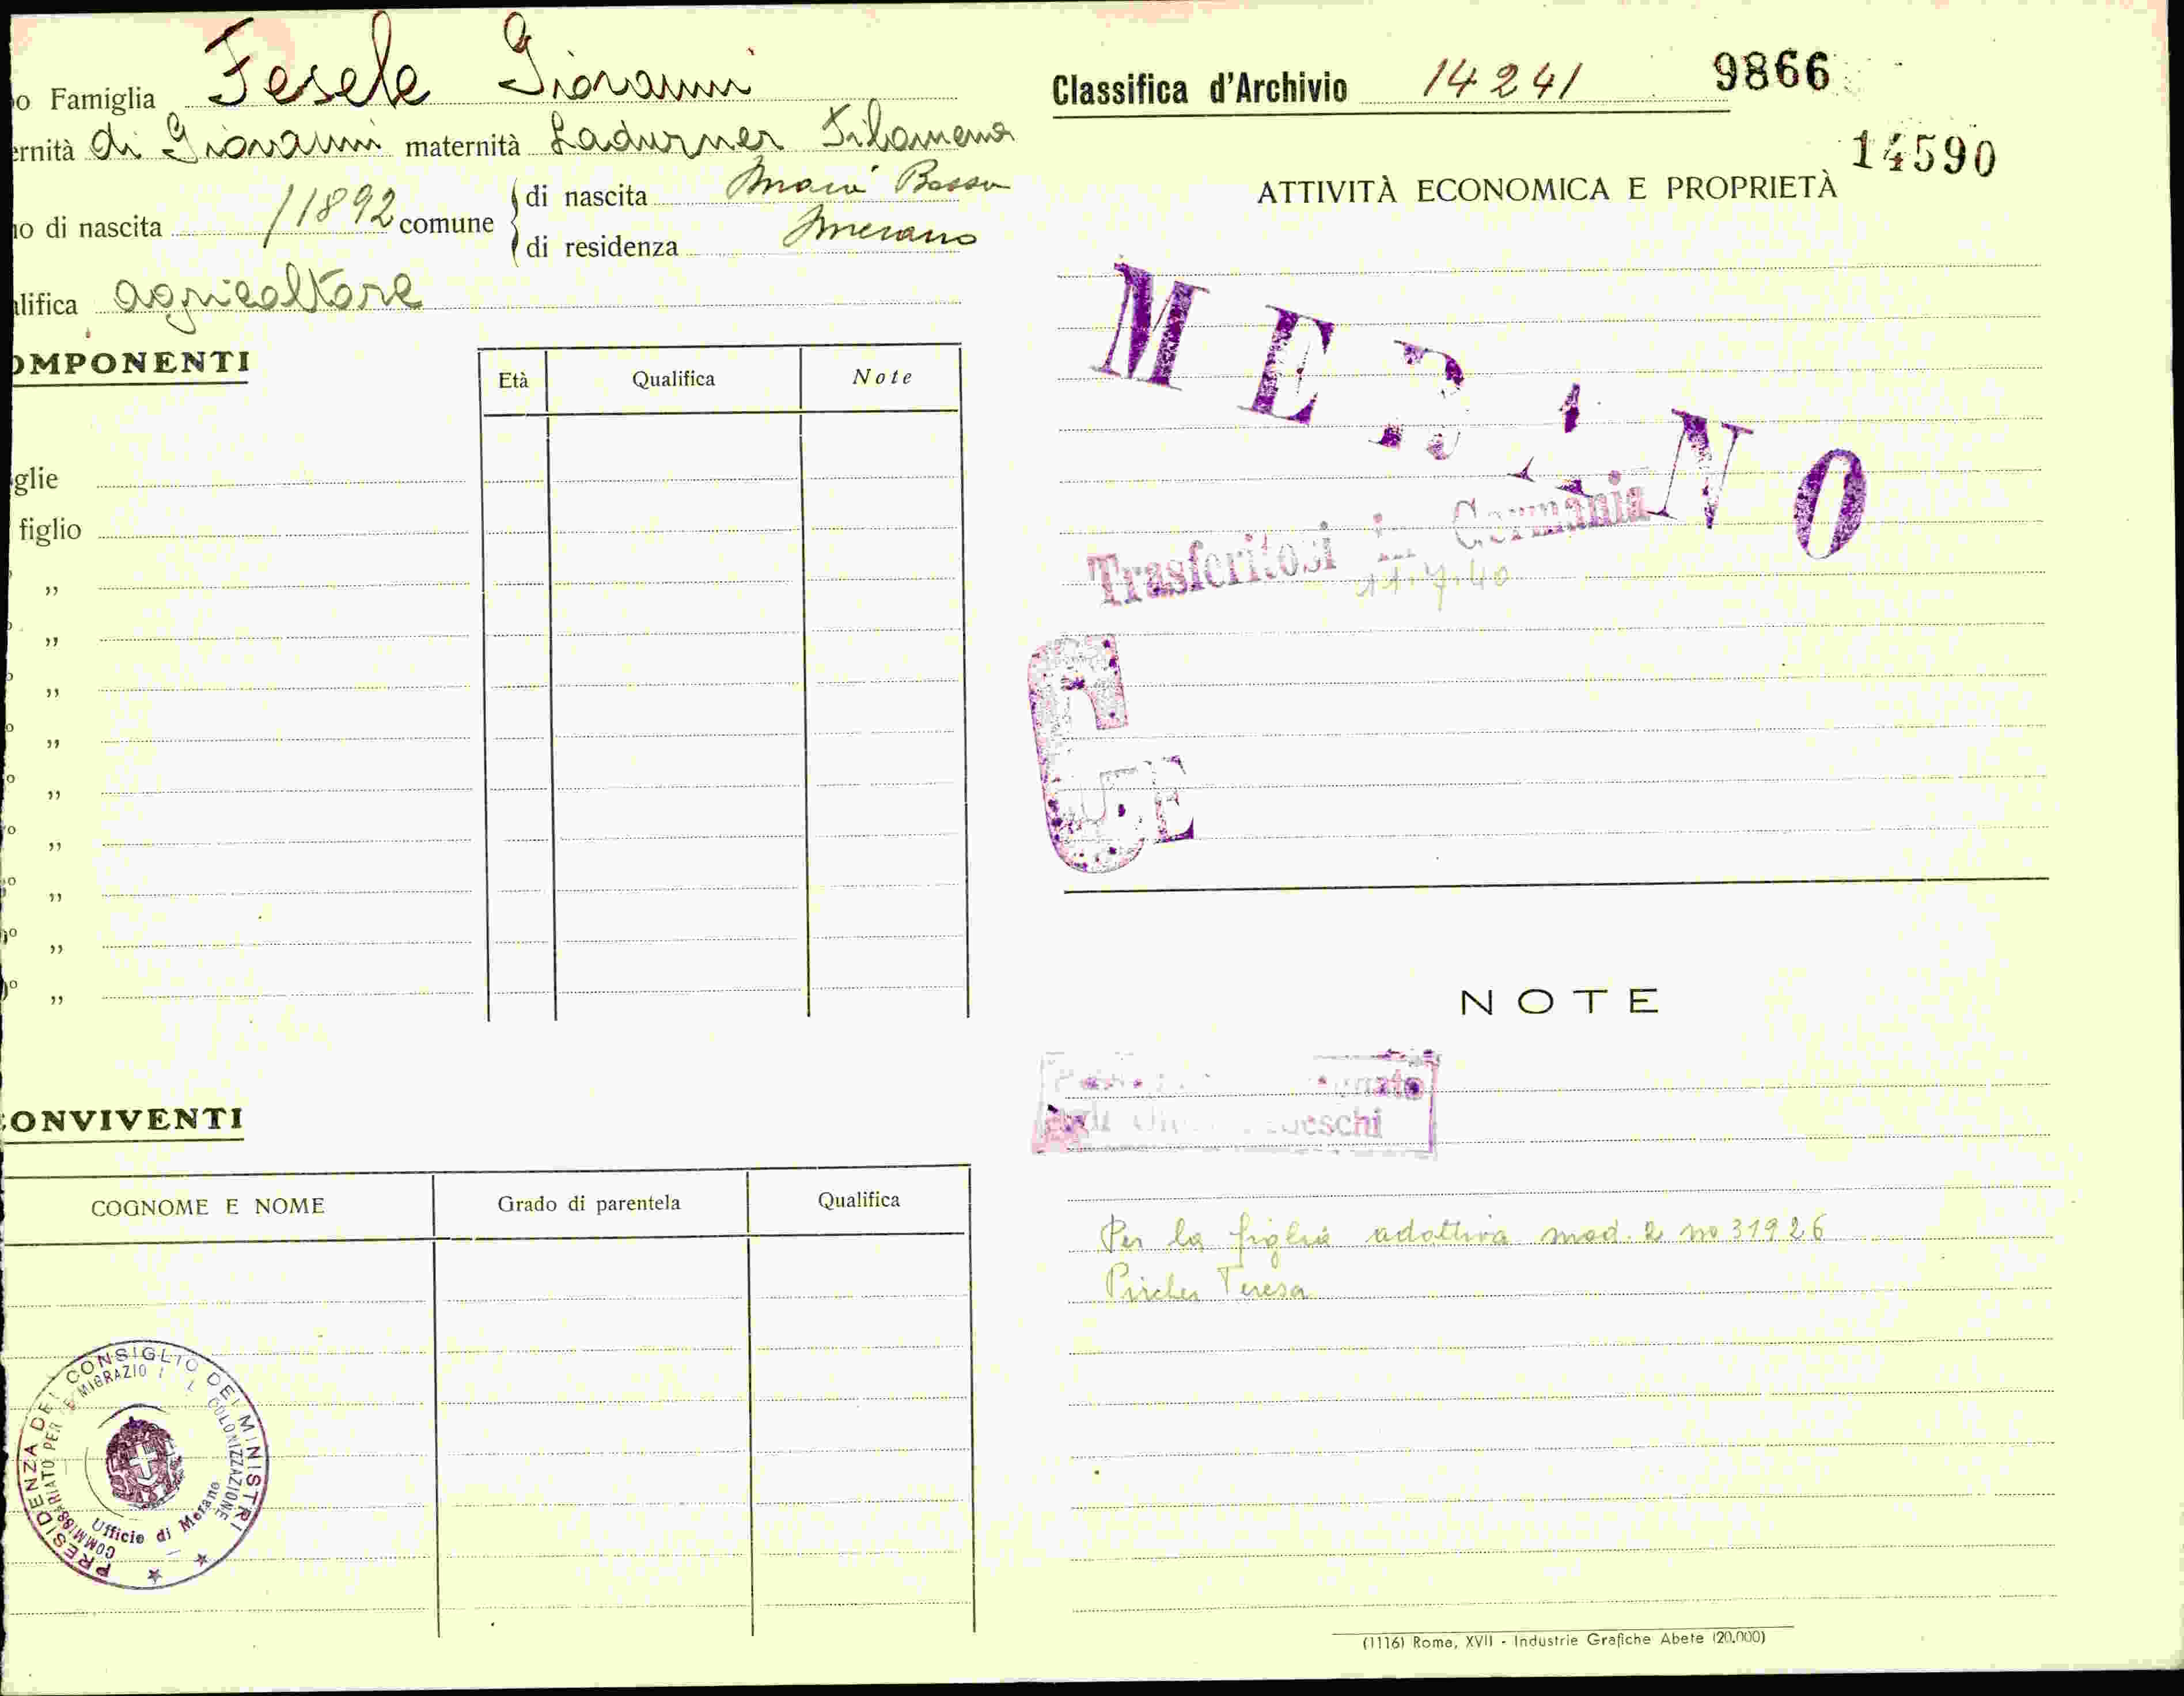 o Famiglia Fesele Giovanni
ernità di Giovanni maternità Ladurner Filomena
o di nascita /1892 comune di nascita Maia Bassa
di residenza Merano
lifica agricoltore
OMPONENTI
Età Qualifica Note
glie
figlio
„
„
„
„
„
„
„
„
„
ONVIVENTI
COGNOME E NOME Grado di parentela Qualifica
PRESIDENZA DEL CONSIGLIO DEI MINISTRI
COMMISSARIATO PER E MIGRAZIO COLONIZZAZIONE
Ufficio di Merano
Classifica d'Archivio 14241 9866
14590
ATTIVITÀ ECONOMICA E PROPRIETÀ
MERANO
Trasferitosi in Germania
11.7.40
NOTE
tedeschi
Per la figlia adottiva mod. 2 no 31926
Pircher Teresa
(1116) Roma, XVII - Industrie Grafiche Abete (20.000)